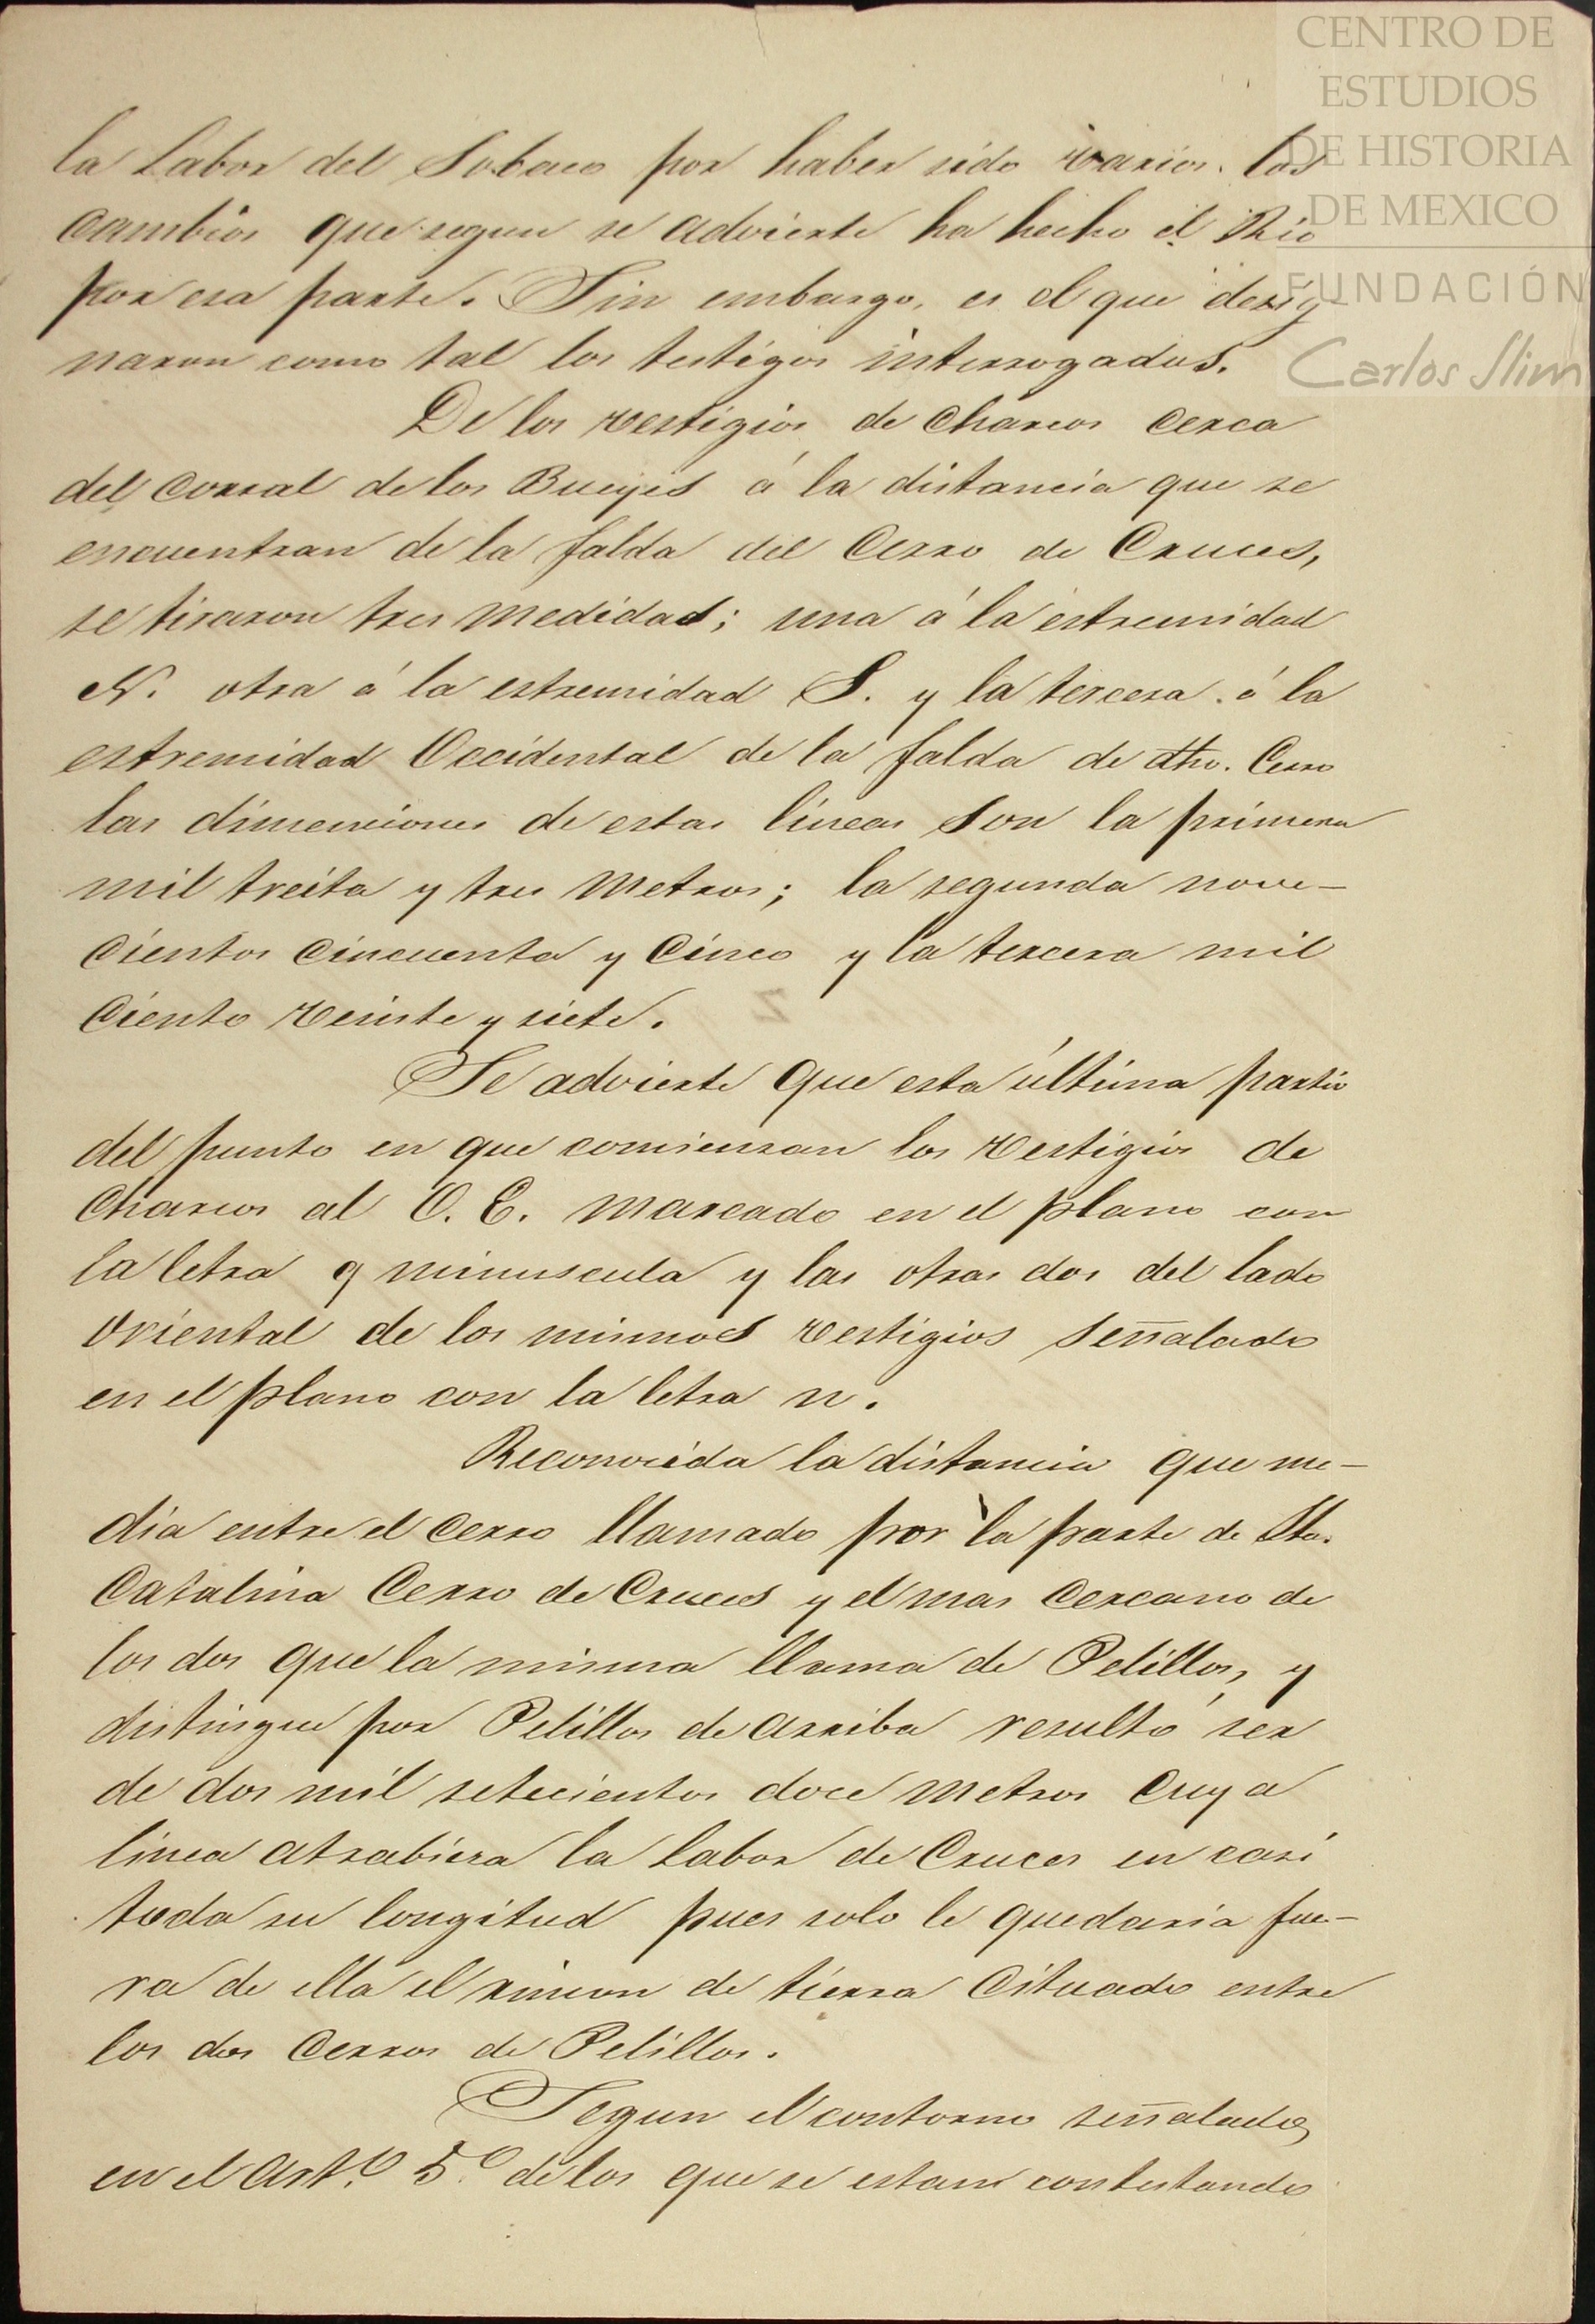 CENTRO DE
ESTUDIOS
DE HISTORIA
DE MEXICO
FUNDACIÓN
Carlos Slim
la Labor del Sobaco por haber sido varios los
cambios que segun se advierte ha hecho el Rio
por esa parte. Sin embargo, es el que desig
naron como tal los testigos interrogados.
De los vestigios de charcos cerca
del corral de los Bueyes á la distancia que se
encuentran de la falda del Cerro de Cruces,
se tiraron tres medidas; una á la estremidad
N. otra á la estremidad S. y la tercera á la
estremidad Occidental de la falda de dho. Cerro
las dimenciones de estas lineas son la primera
mil treita y tres metros; la segunda nove-
cientos cincuenta y cinco y la tercera mil
ciento veinte y siete.
Se advierte que esta última partió
del punto en que comienzan los vestigios de
charcos al O. E. marcado en el plano con
la letra q minuscula y las otras dos del lado
oriental de los mismos vestigios señalado
en el plano con la letra n.
Reconocida la distancia que me-
dia entre el cerro llamado por la parte de Sta.
Catalina Cerro de Cruces y el mas cercano de
los dos que la misma llama de Pelillos, y
distingue por Pelillos de arriba resultó ser
de dos mil setecientos doce metros cuya
linea atrabiesa la Labor de Cruces en casi
toda su longitud pues solo le quedaria fue-
ra de ella el rincon de tierra cituado entre
los dos Cerros de Pelillos.
Segun el contorno señalado
en el Art.º 5.º de los que se estan contestando